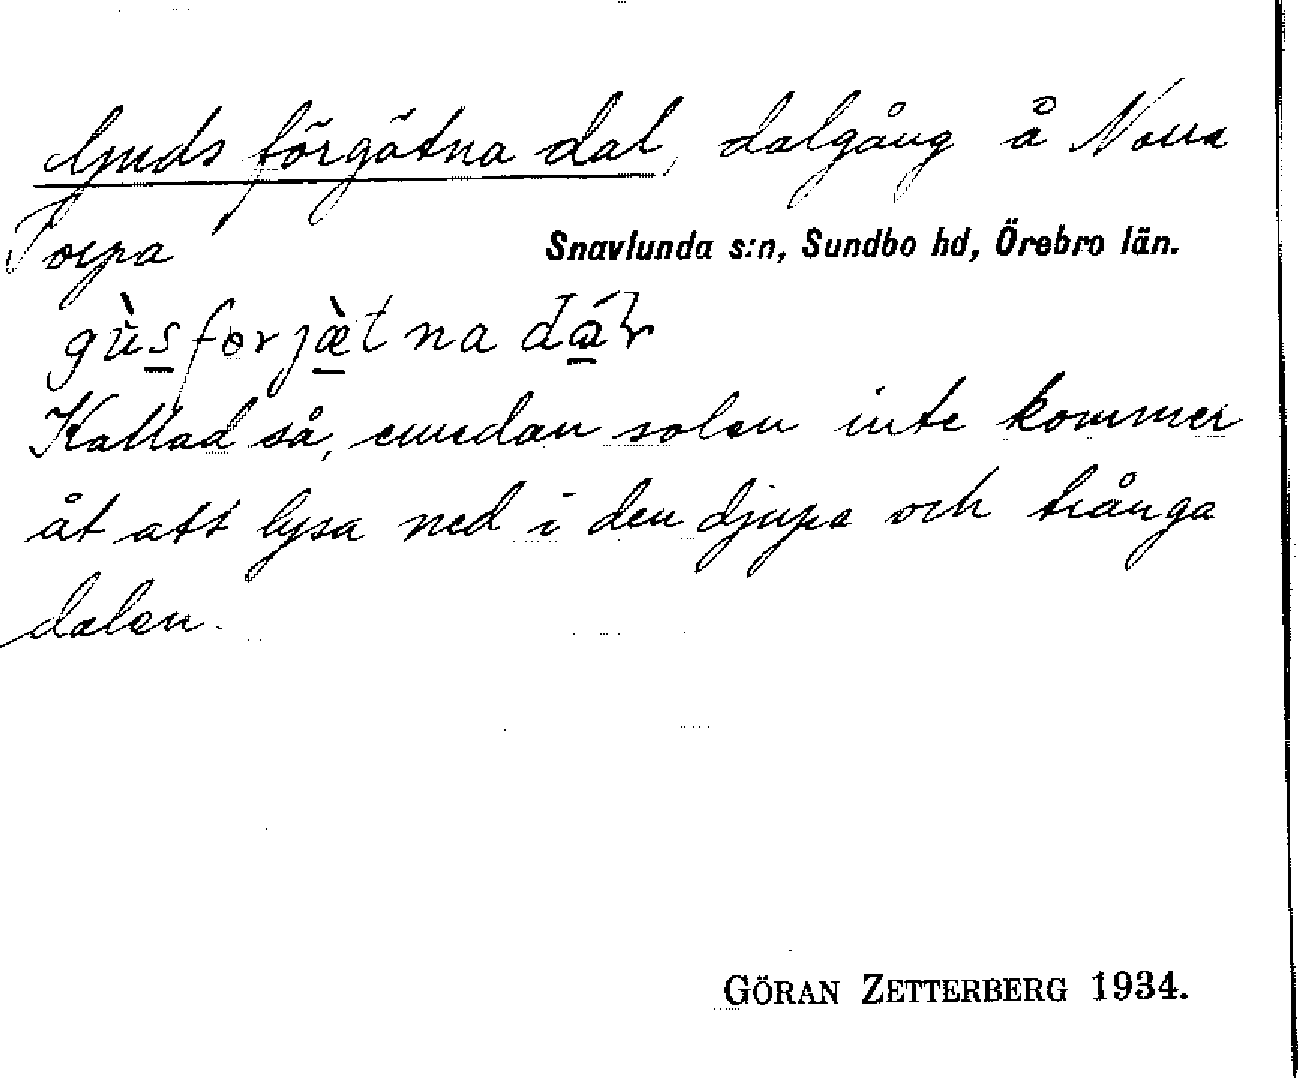 Guds förgätna dal, dalgång å Norra
Torpa
Snavlunda s:n, Sundbo hd, Örebro län.
gùs forjæ̀tna dáɽ
Kallad så, emedan solen inte kommer
åt att lysa ned i den djupa och trånga
dalen.
GÖRAN ZETTERBERG 1934.